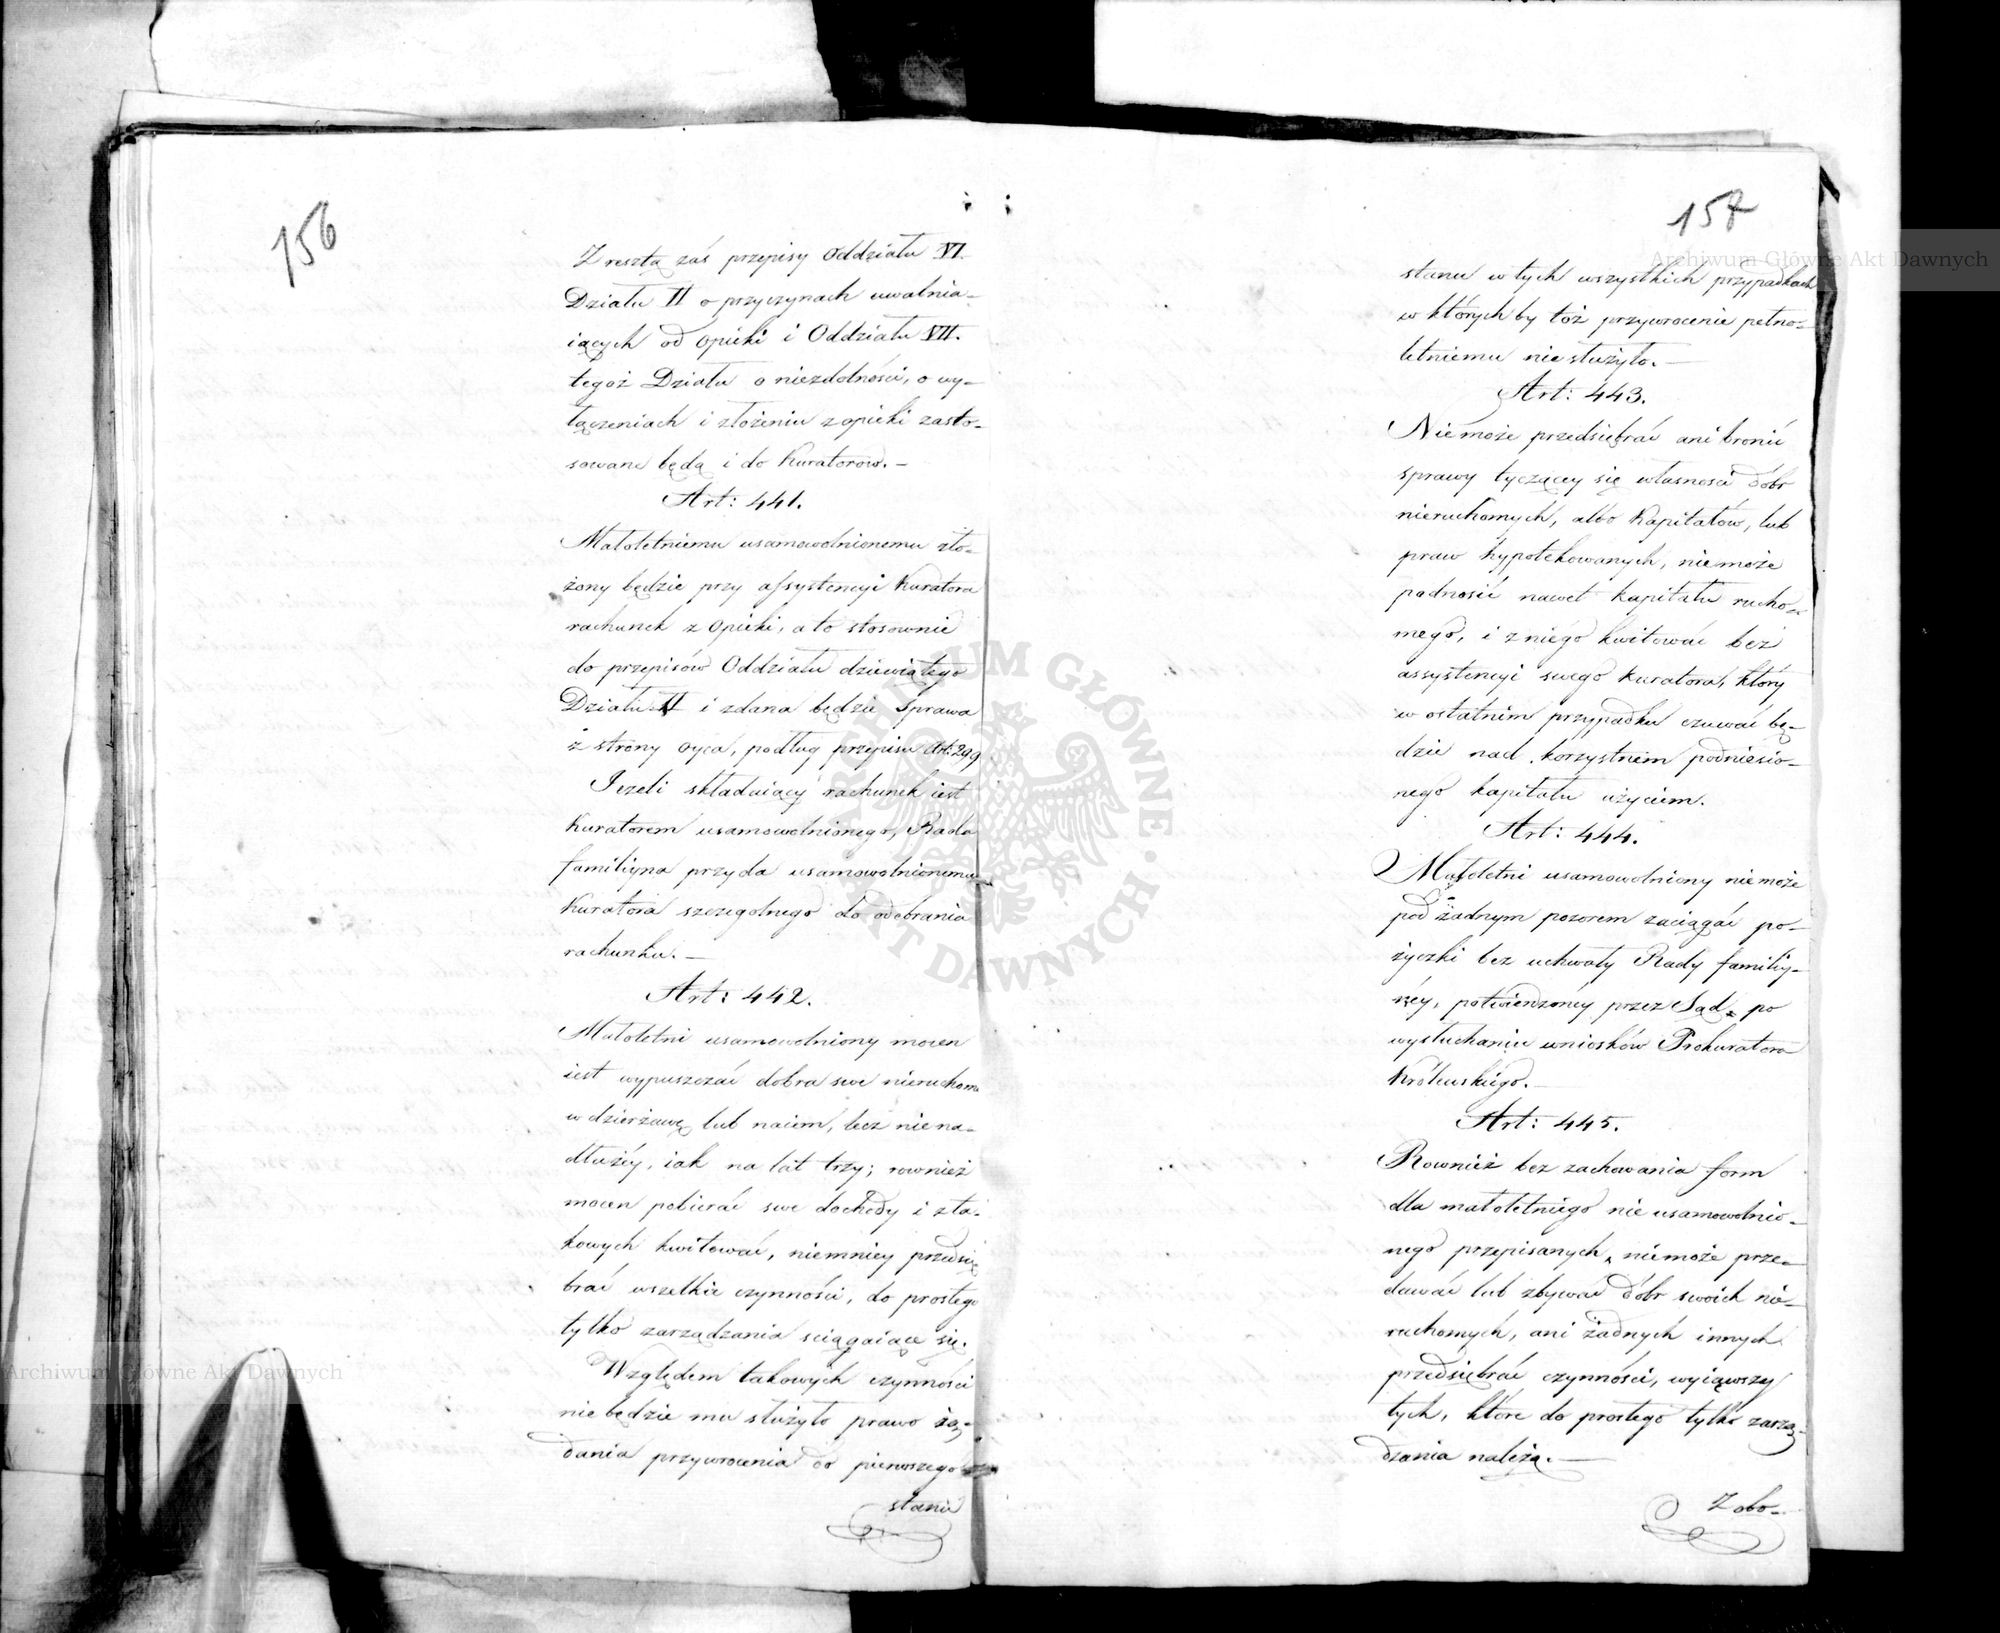 156
Zresztą zaś przepisy Oddziału VI.
Działu II o przyczynach uwalnia-
iących od opieki i Oddziału VII.
tegoż Działu o niezdolności, o wy-
łączeniach i złożeniu z opieki zasto-
sowane będą i do Kuratorow. -
Art: 441.
Małoletniemu usamowolnionemu zło-
żony będzie przy assystencyi Kuratora
rachunek z opieki, a to stosownie
do przepisów Oddziału dziewiątego
Działu II i zdana będzie sprawa
z strony oyca, podług przepisu Art: 299
Jeżeli składaiący rachunek iest
Kuratorem usamowolnionego, Rada
familiyna przyda usamowolnionemu
Kuratora szczegolnego do odebrania
rachunku. -
Art: 442.
Małoletni usamowolniony mocen
iest wypuszczać dobra swe nieruchome
w dzierżawę lub naiem, lecz nie na-
dłużéy, iak na lat trzy; rownież
mocen pobierać swe dochody i z ta-
kowych kwitować, niemniey przedsię
brać wszelkie czynności, do prostego
tylko zarządzania sciągaiące się.
Względem takowych czynności
nie będzie mu służyło prawo żą-
dania przywrocenia do pierwszego
stanu
157
stanu w tych wszystkich przypadkach
w których by toż przywrocenie pełno-
letniemu nie służyło. -
Art: 443.
Nie może przedsiębrać ani bronić
sprawy tyczącey się własności dóbr
nieruchomych, albo Kapitałow, lub
praw hypotekowanych, nie może
podnosić nawet kapitału rucho-
mego, i z niego kwitować bez
assystencyi swego kuratora, który
w ostatnim przypadku czuwać bę-
dzie nad korzystnem podniesio-
nego kapitału użyciem.
Art: 444.
Małoletni usamowolniony nie może
pod żadnym pozorem zaciągać po-
życzki bez uchwały Rady familiy-
néy, potwierdzonéy przez Sąd, po
wysłuchaniu wniosków Prokuratora
Królewskiego. -
Art: 445.
Rownież bez zachowania form
dla małoletniego nie usamowolnio-
nego przepisanych, nie może prze-
dawać lub zbywać dóbr swoich nie-
ruchomych, ani żadnych innych
przedsiębrać czynności, wyiąwszy
tych, które do prostego tylko zarzą-
dzania należą. -
Zobo-
Archiwum Główne Akt Dawnych
Archiwum Główne Akt Dawnych
ARCHIWUM GŁÓWNE AKT DAWNYCH